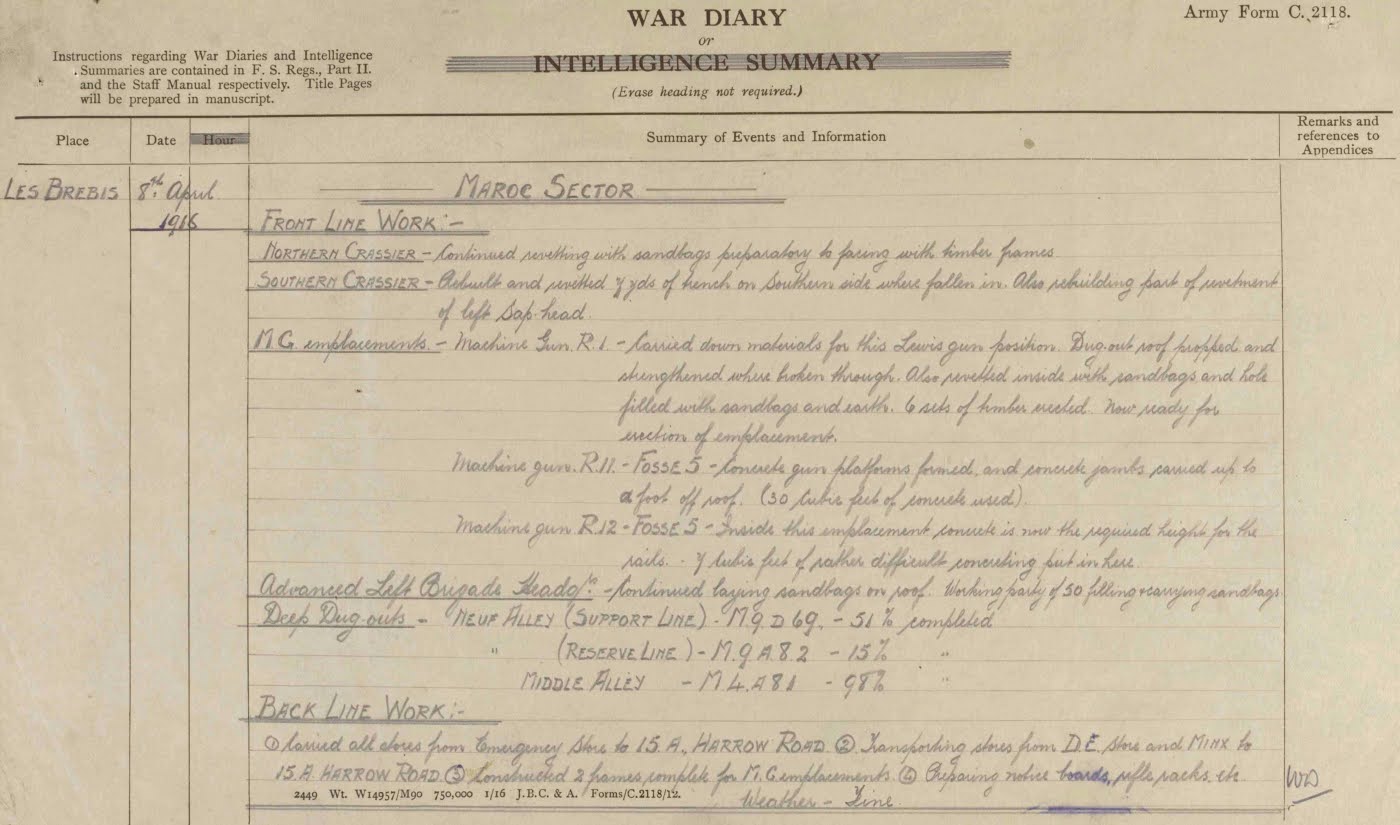 WAR DIARY
Army Form C. 2118.
or
INTELLIGENCE SUMMARY
(Erase heading not required.)
Instructions regarding War Diaries and Intelligence
Summaries are contained in F. S. Regs., Part II.
and the Staff Manual respectively. Title Pages
will be prepared in manuscript.
Place Date Hour Summary of Events and Information Remarks and references to Appendices
LES BREBIS 8th April MAROC SECTOR
1916 FRONT LINE WORK:-
NORTHERN CRASSIER - Continued revetting with sandbags preparatory to facing with timber frames
SOUTHERN CRASSIER - Rebuilt and revetted 7 yds of trench on Southern side where fallen in. Also rebuilding part of revetment
of left Sap-head.
M.G. emplacements. - Machine Gun. R.1 - Carried down materials for this Lewis gun position. Dug-out roof propped and
strengthened where broken through. Also revetted inside with sandbags and hole
filled with sandbags and earth. 6 sets of timber erected. Now ready for
erection of emplacement.
Machine gun. R.11. - FOSSE 5 - Concrete gun platforms formed, and concrete jambs carried up to
a foot off roof. (30 Cubic feet of concrete used).
Machine gun R.12 - FOSSE 5 - Inside this emplacement concrete is now the required height for the
rails. - 7 Cubic feet of rather difficult concreting put in here.
Advanced Left Brigade Headqrs - Continued laying sandbags on roof. Working party of 50 filling & carrying sandbags.
Deep Dug-outs - NEUF ALLEY (SUPPORT LINE) - M.9.D 69. - 51% completed
" (RESERVE LINE) - M.9.A.8.2 - 15% "
MIDDLE ALLEY - M 4.A 81 - 98% "
BACK LINE WORK:-
① Carried all stores from Emergency Store to 15.A, HARROW ROAD. ② Transporting stores from D.E. Store and MINX to
15.A. HARROW ROAD. ③ Constructed 2 frames complete for M.G. emplacements. ④ Preparing notice boards, rifle racks, etc.
2449 Wt. W14957/M90 750,000 1/16 J.B.C. & A. Forms/C.2118/12.
Weather - Fine.